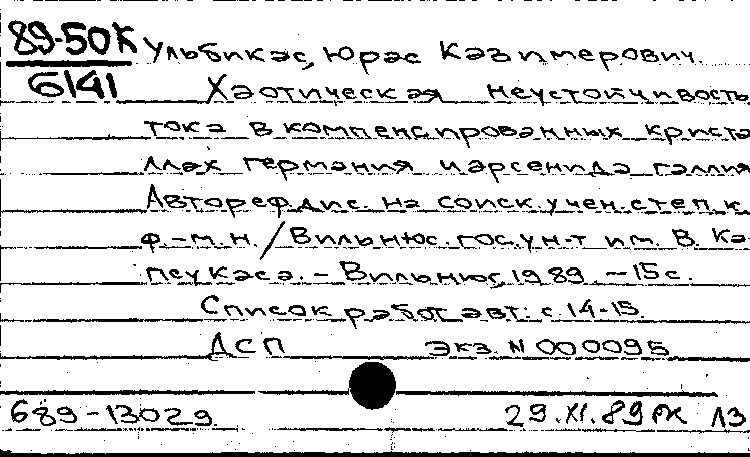 89-50К Ульбикас, Юрас Казимерович.
6141 Хаотическая неустойчивость
тока в компенсированных криста
ллах германия и арсенида галлия
Автореф. дис. на соиск. учен. степ. к.
ф.-м.н. / Вильнюс. гос. ун-т им. В. Ка
псукаса. - Вильнюс, 1989. - 15 с.
Список работ авт.: с. 14-15.
ДСП Экз. N 000095
689-13029. 29.XI.89 РК ЛЗ